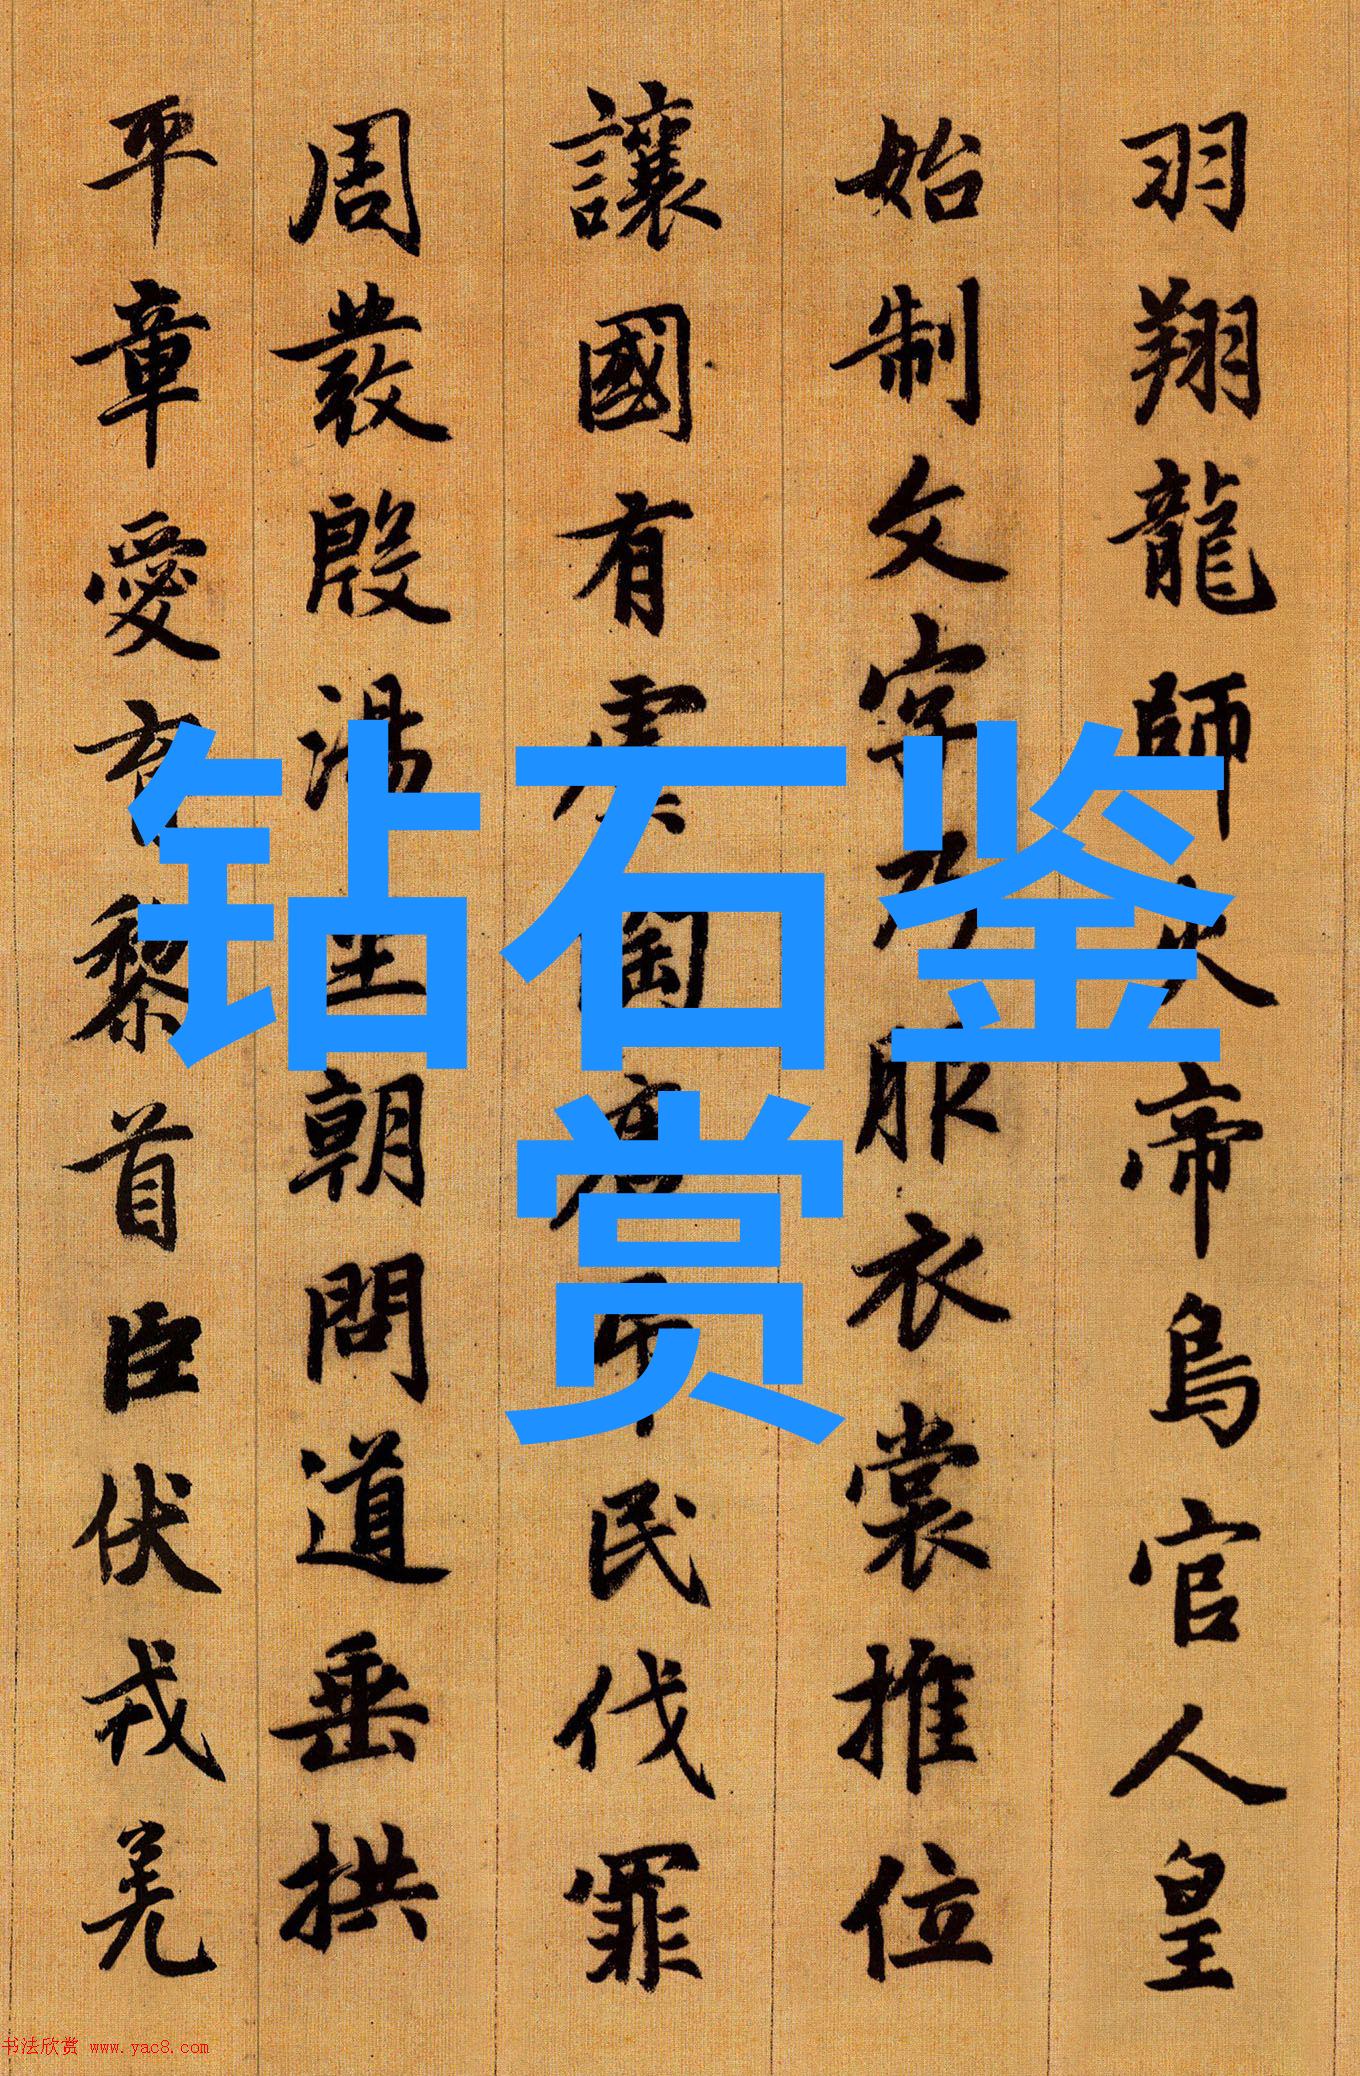 羽翔龍師火帝鳥官人皇
始制文字乃服衣裳推位
讓國有虞陶唐弔民伐罪
周發殷湯坐朝問道垂拱
平章愛育黎首臣伏戎羌
钻石鉴
赏
书法欣赏 www.yac8.com